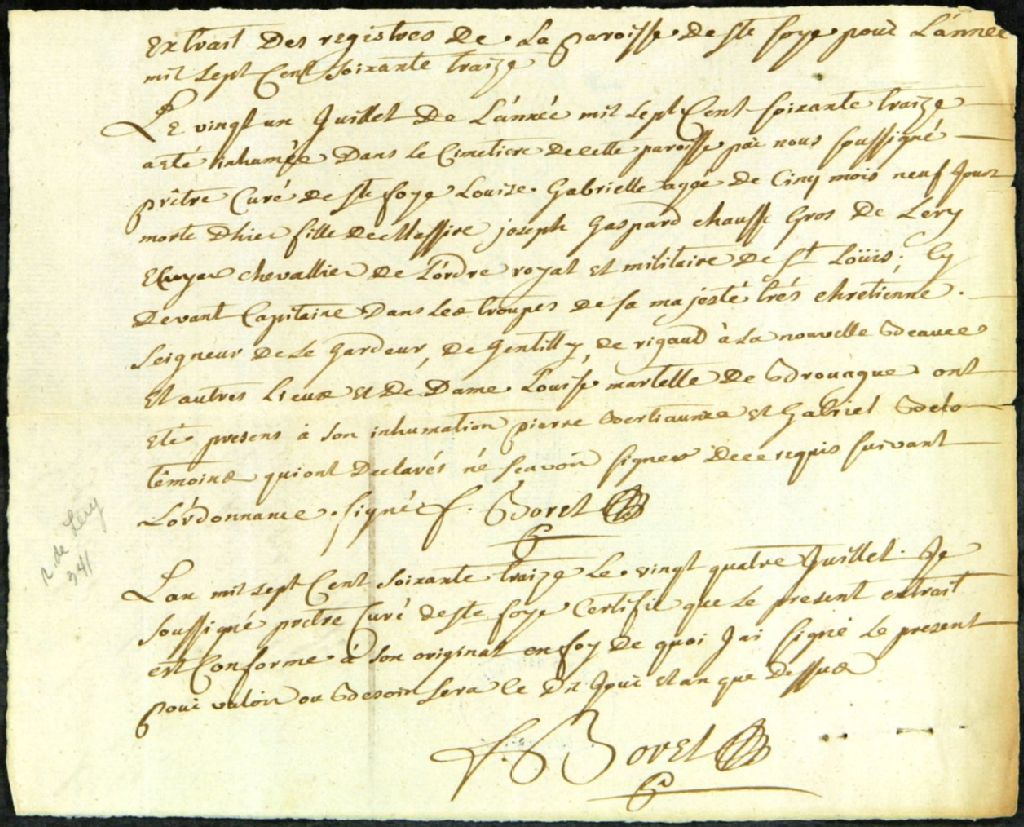 Extrait Des registres de La paroisse de Ste foye pour L'année
mil sept Cent soixante traize
Le vingt un Juillet de L'année mil sept Cent soixante traize
a eté inhumée Dans le Cimetiere de cette paroisse par nous soussigné
prêtre Curé de Ste foye Louise Gabrielle aggé de Cinq mois neuf Jours
morte d'hier fille de Messire joseph Gaspard chausse Gros de Lery
Ecuyer chevallier de L'ordre royal et militaire de St Loüis. Cy
devant Capitaine Dans les troupes de sa majesté trés chrétienne.
Seigneur de Le Gardeur, de Gentilly, de rigaud à La nouvelle Beauce
et autres Lieux et de Dame Louise martelle de Brouague ont
eté présens à son inhumation pierre Berthiaume et Gabriel
témoins qui ont Declarés né scavoir signer de ce requis suivant
L'ordonnance. signé f. Borel
L'an mil sept Cent soixante traize le vingt quatre Juillet. Je
soussigné prêtre Curé de Ste foye Certifie que le present extrait
est Conforme à son original en foy de quoi J'ai signé le present
pour valoir ou Besoin sera le Dit Jour et an que Dessus
f. Borel
R. de Lery
341